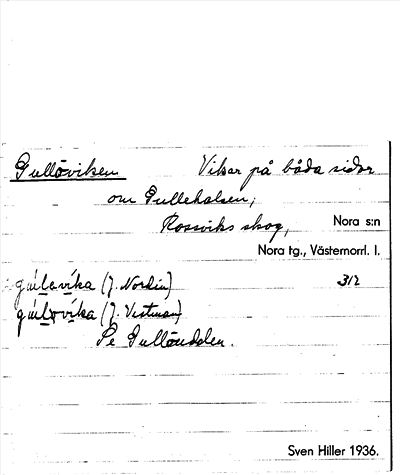 Gullöviken Vikar på båda sidor
om Gullehalsen,
Rossviks skog, Nora s:n
Nora tg., Västernorrl. l.
gúlevı́ka (J. Nordin) 312
gúlovı́ka (J. Vestman)
Se Gullöudden.
Sven Hiller 1936.